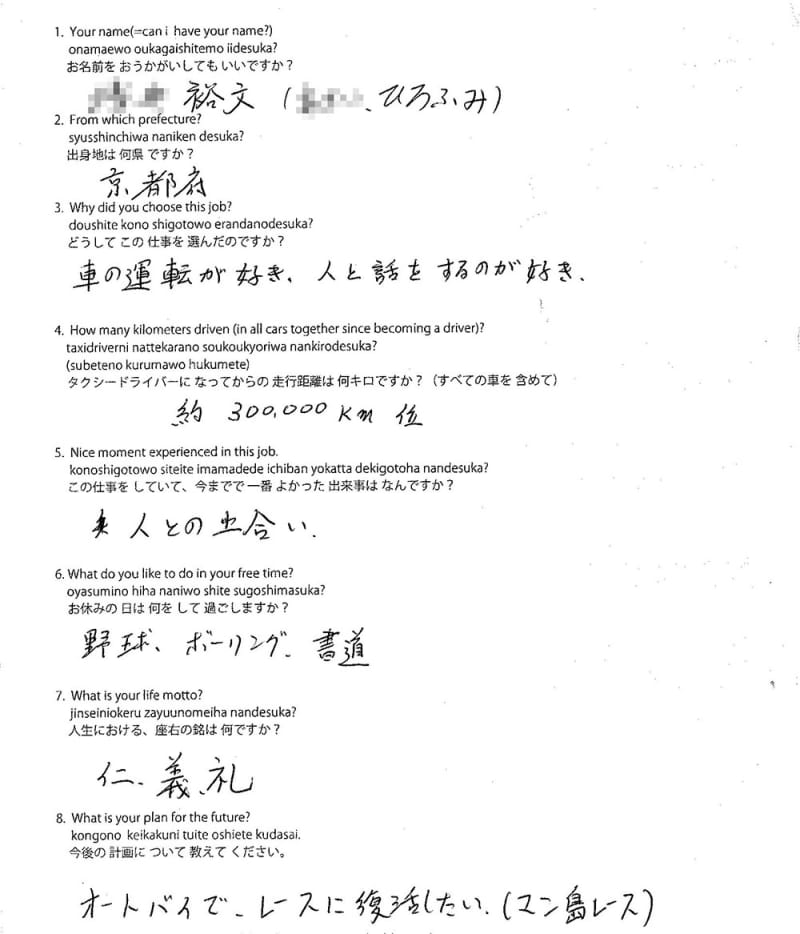 1. Your name(=can i have your name?)
onamaewo oukagaishitemo iidesuka?
お名前を おうかがいしても いいですか？
裕文 ( 、ひろふみ)
2. From which prefecture?
syusshinchiwa naniken desuka?
出身地は 何県 ですか？
京都府
3. Why did you choose this job?
doushite kono shigotowo erandanodesuka?
どうして この 仕事を 選んだのですか？
車の運転が好き、人と話をするのが好き、
4. How many kilometers driven (in all cars together since becoming a driver)?
taxidriverni nattekarano soukoukyoriwa nankirodesuka?
(subeteno kurumawo hukumete)
タクシードライバーに なってからの 走行距離は 何キロですか？（すべての車を 含めて）
約 300,000 Km 位
5. Nice moment experienced in this job.
konoshigotowo siteite imamadede ichiban yokatta dekigotoha nandesuka?
この仕事を していて、今までで 一番 よかった 出来事は なんですか？
人との出合い.
6. What do you like to do in your free time?
oyasumino hiha naniwo shite sugoshimasuka?
お休みの 日は 何を して 過ごしますか？
野球、ボーリング、書道
7. What is your life motto?
jinseiniokeru zayuunomeiha nandesuka?
人生における、座右の銘は 何ですか？
仁、義、礼
8. What is your plan for the future?
kongono keikakuni tuite oshiete kudasai.
今後の 計画に ついて 教えて ください。
オートバイで、レースに復活したい.(マン島レース)